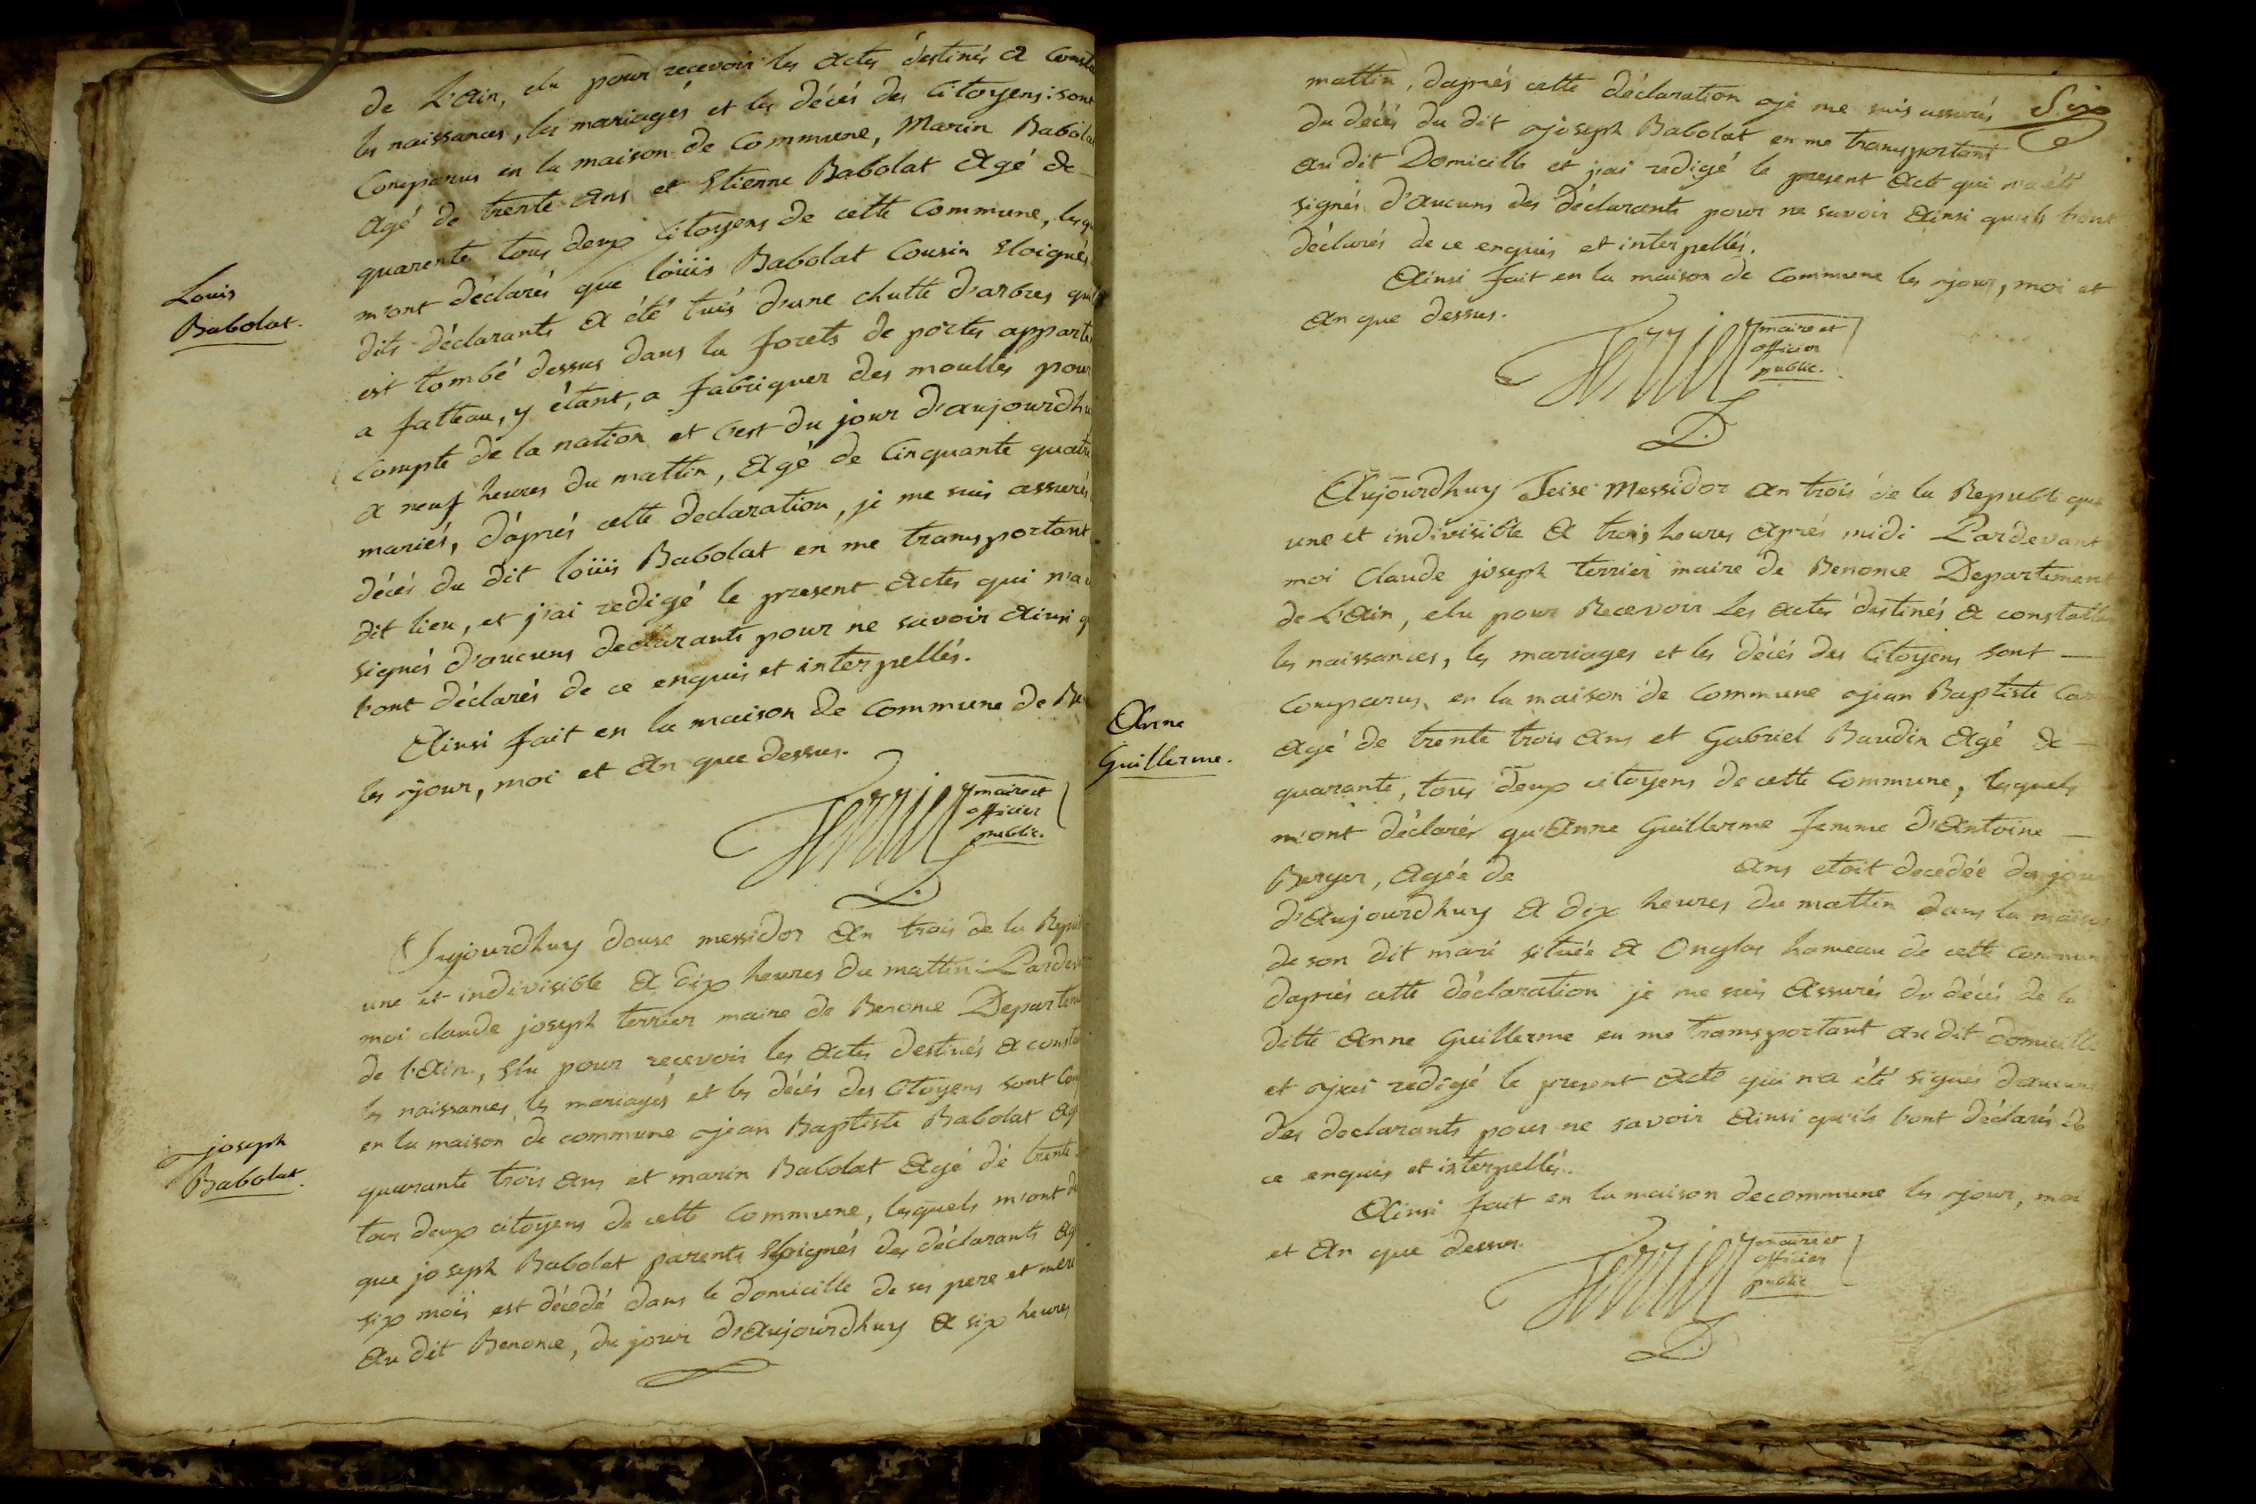 de L'Ain, elu pour recevoir les actes destinés a
les naissances, les mariagés et les décés des Citoyens: sont
Comparus en la maison de Commune, Marin Babolat
Agé de trente ans et Etienne Babolat Agé de
quarente tous deux Citoyens de cette Commune,
Louis
Babolat.
m'ont déclarés que loüis Babolat Cousin Eloignés
dits déclarants a été tués d'une chutte d'arbres
est tombé dessus dans la forets de portes
a fatteau, y étant, a fabriquer des moulles pour
compte de la nation et c'est du jour d'aujourdhuy
a neuf heures du mattin, Agé de Cinquante quatre
mariés, d'aprés cette declaration, je me suis assurés
décés du dit loüis Babolat en me transportant
dit lieu, et j'ai redigé le present actes qui
signés d'aucuns declarants pour ne savoir ainsi
l'ont déclarés de ce enquis et interpellés.
Ainsi fait en la maison de Commune de
les jour, moi et An que dessus.
Terrier maire et
officier
public.
Aujourdhuy douse messidor An trois de la
une et indivisible a dix heures du mattin Pardevant
moi claude joseph terrier maire de Benonce
de l'Ain, Elu pour recevoir les actes destinés a
les naissances, les mariagés et les décés des Citoyens sont
en la maison de commune jean Baptiste Babolat
joseph
Babolat.
quarante trois Ans et marin Babolat Agé de trente
tous deux citoyens de cette Commune, lesquels m'ont
que joseph Babolat parents Eloignés des déclarants
six moïs est décédé dans le domicille de ses pere et mere
Au dit Benonce, du jour d'Aujourdhuy a six heures
Six
mattin, d'aprés cette déclaration je me suis assurés
du décés du dit joseph Babolat en me transportant
au dit Domicille et j'ai redigé le present Acte qui n'a été
signés d'aucuns des déclarants pour ne savoir Ainsi quils l'ont
déclarés de ce enquis et interpellés.
Ainsi fait en la maison de Commune les jour, moi et
An que dessus.
Terrier maire et
officier
public.
Aujourdhuy Seise Messidor An trois de la Republique
une et indivisible a trois heures aprés midi Pardevant
moi Claude joseph terrier maire de Benonce Departement
de L'Ain, elu pour Recevoir Les actes destinés a constatter
les naissances, les mariages et les décés des Citoyens sont
Comparus, en la maison de Commune jean Baptiste
Anne
Guillerme.
Agé de trente trois Ans et Gabriel Baudin Agé de
quarante, tous deux citoyens de cette Commune, lesquels
m'ont déclarés qu'Anne Guillerme femme d'Antoine
Berger, Agée de ans etoit decedée du jour
d'Aujourdhuy a dix heures du mattin dans la maison
de son dit mari située a Onglas hameau de cette commune
daprés cette déclaration je me suis Assurés du décés de la
ditte Anne Guillerme en me transportant au dit domicille
et j'ai redigé le present acte qui n'a été signés d'aucuns
des declarants pour ne savoir Ainsi qu'ils l'ont déclarés de
ce enquis et interpellés.
Ainsi fait en la maison de commune les jour, moi
et An que dessus.
Terrier maire et
officier
public